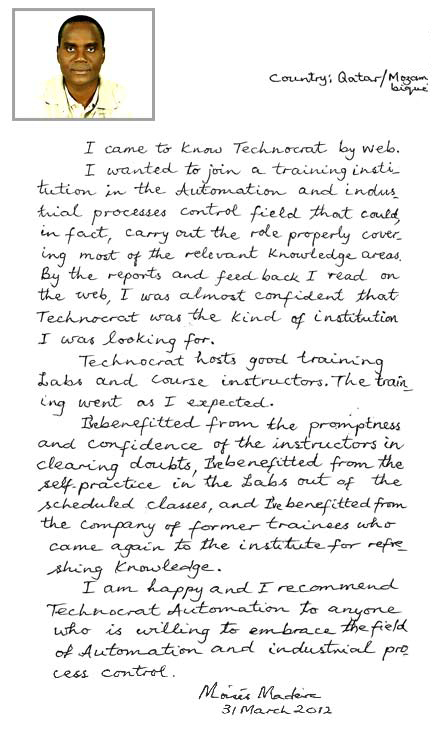 Country: Qatar/Mozam
bique
I came to know Technocrat by web.
I wanted to join a training insti-
tution in the Automation and indus-
trial processes control field that could,
in fact, carry out the role properly cover-
ing most of the relevant knowledge areas.
By the reports and feed back I read on
the web, I was almost confident that
Technocrat was the kind of institution
I was looking for.
Technocrat hosts good training
Labs and course instructors. The train-
ing went as I expected.
I've benefitted from the promptness
and confidence of the instructors in
clearing doubts, I've benefitted from the
self-practice in the Labs out of the
scheduled classes, and I've benefitted from
the company of former trainees who
came again to the institute for refre-
shing knowledge.
I am happy and I recommend
Technocrat Automation to anyone
who is willing to embrace the field
of Automation and industrial pro
cess control.
Moisés Madeira
31 March 2012